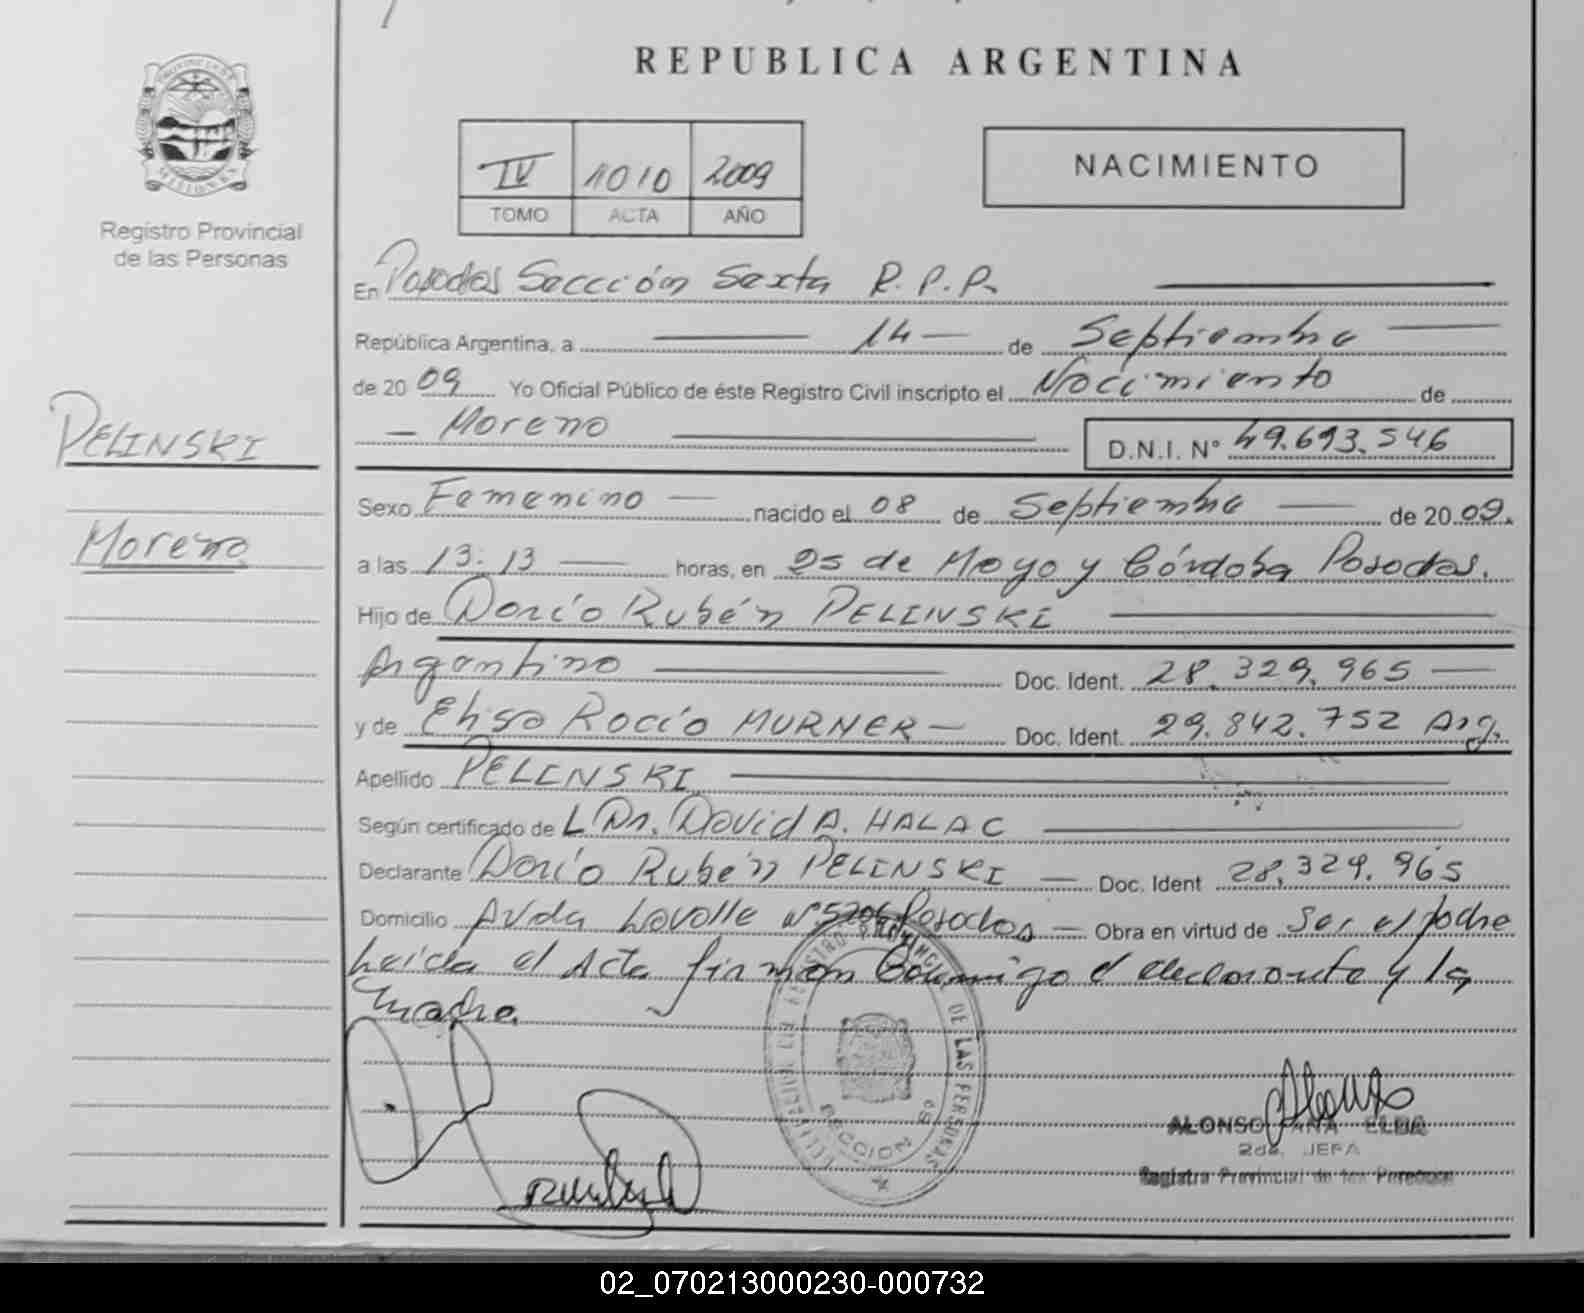 REPUBLICA ARGENTINA
PROVINCIA DE
MISIONES
Registro Provincial
de las Personas
IV 1010 2009
TOMO ACTA AÑO
NACIMIENTO
En Posadas Sección Sexta R.P.P.
República Argentina, a 14 de Septiembre
de 20 09 Yo Oficial Público de éste Registro Civil inscripto el Nacimiento de
Moreno D.N.I. Nº 49.693.546
PELINSKI
Moreno
Sexo Femenino nacido el 08 de Septiembre de 20 09.
a las 13:13 horas, en 25 de Mayo y Córdoba Posadas.
Hijo de Darío Rubén PELINSKI
Argentino Doc. Ident. 28.329.965
y de Elisa Rocío MURNER Doc. Ident. 29.842.752 Arg.
Apellido PELINSKI
Según certificado de L Dr. David A. HALAC
Declarante Darío Rubén PELINSKI Doc. Ident 28.329.965
Domicilio Avda Lavalle Nº 5206 Posadas Obra en virtud de Ser el padre
Leída el Acta firman Conmigo el declarante y la
madre
REGISTRO PROVINCIAL DE LAS PERSONAS
SECCION 6º
ALONSO ANA ELBA
2da. JEFA
Registro Provincial de las Personas
02_070213000230-000732